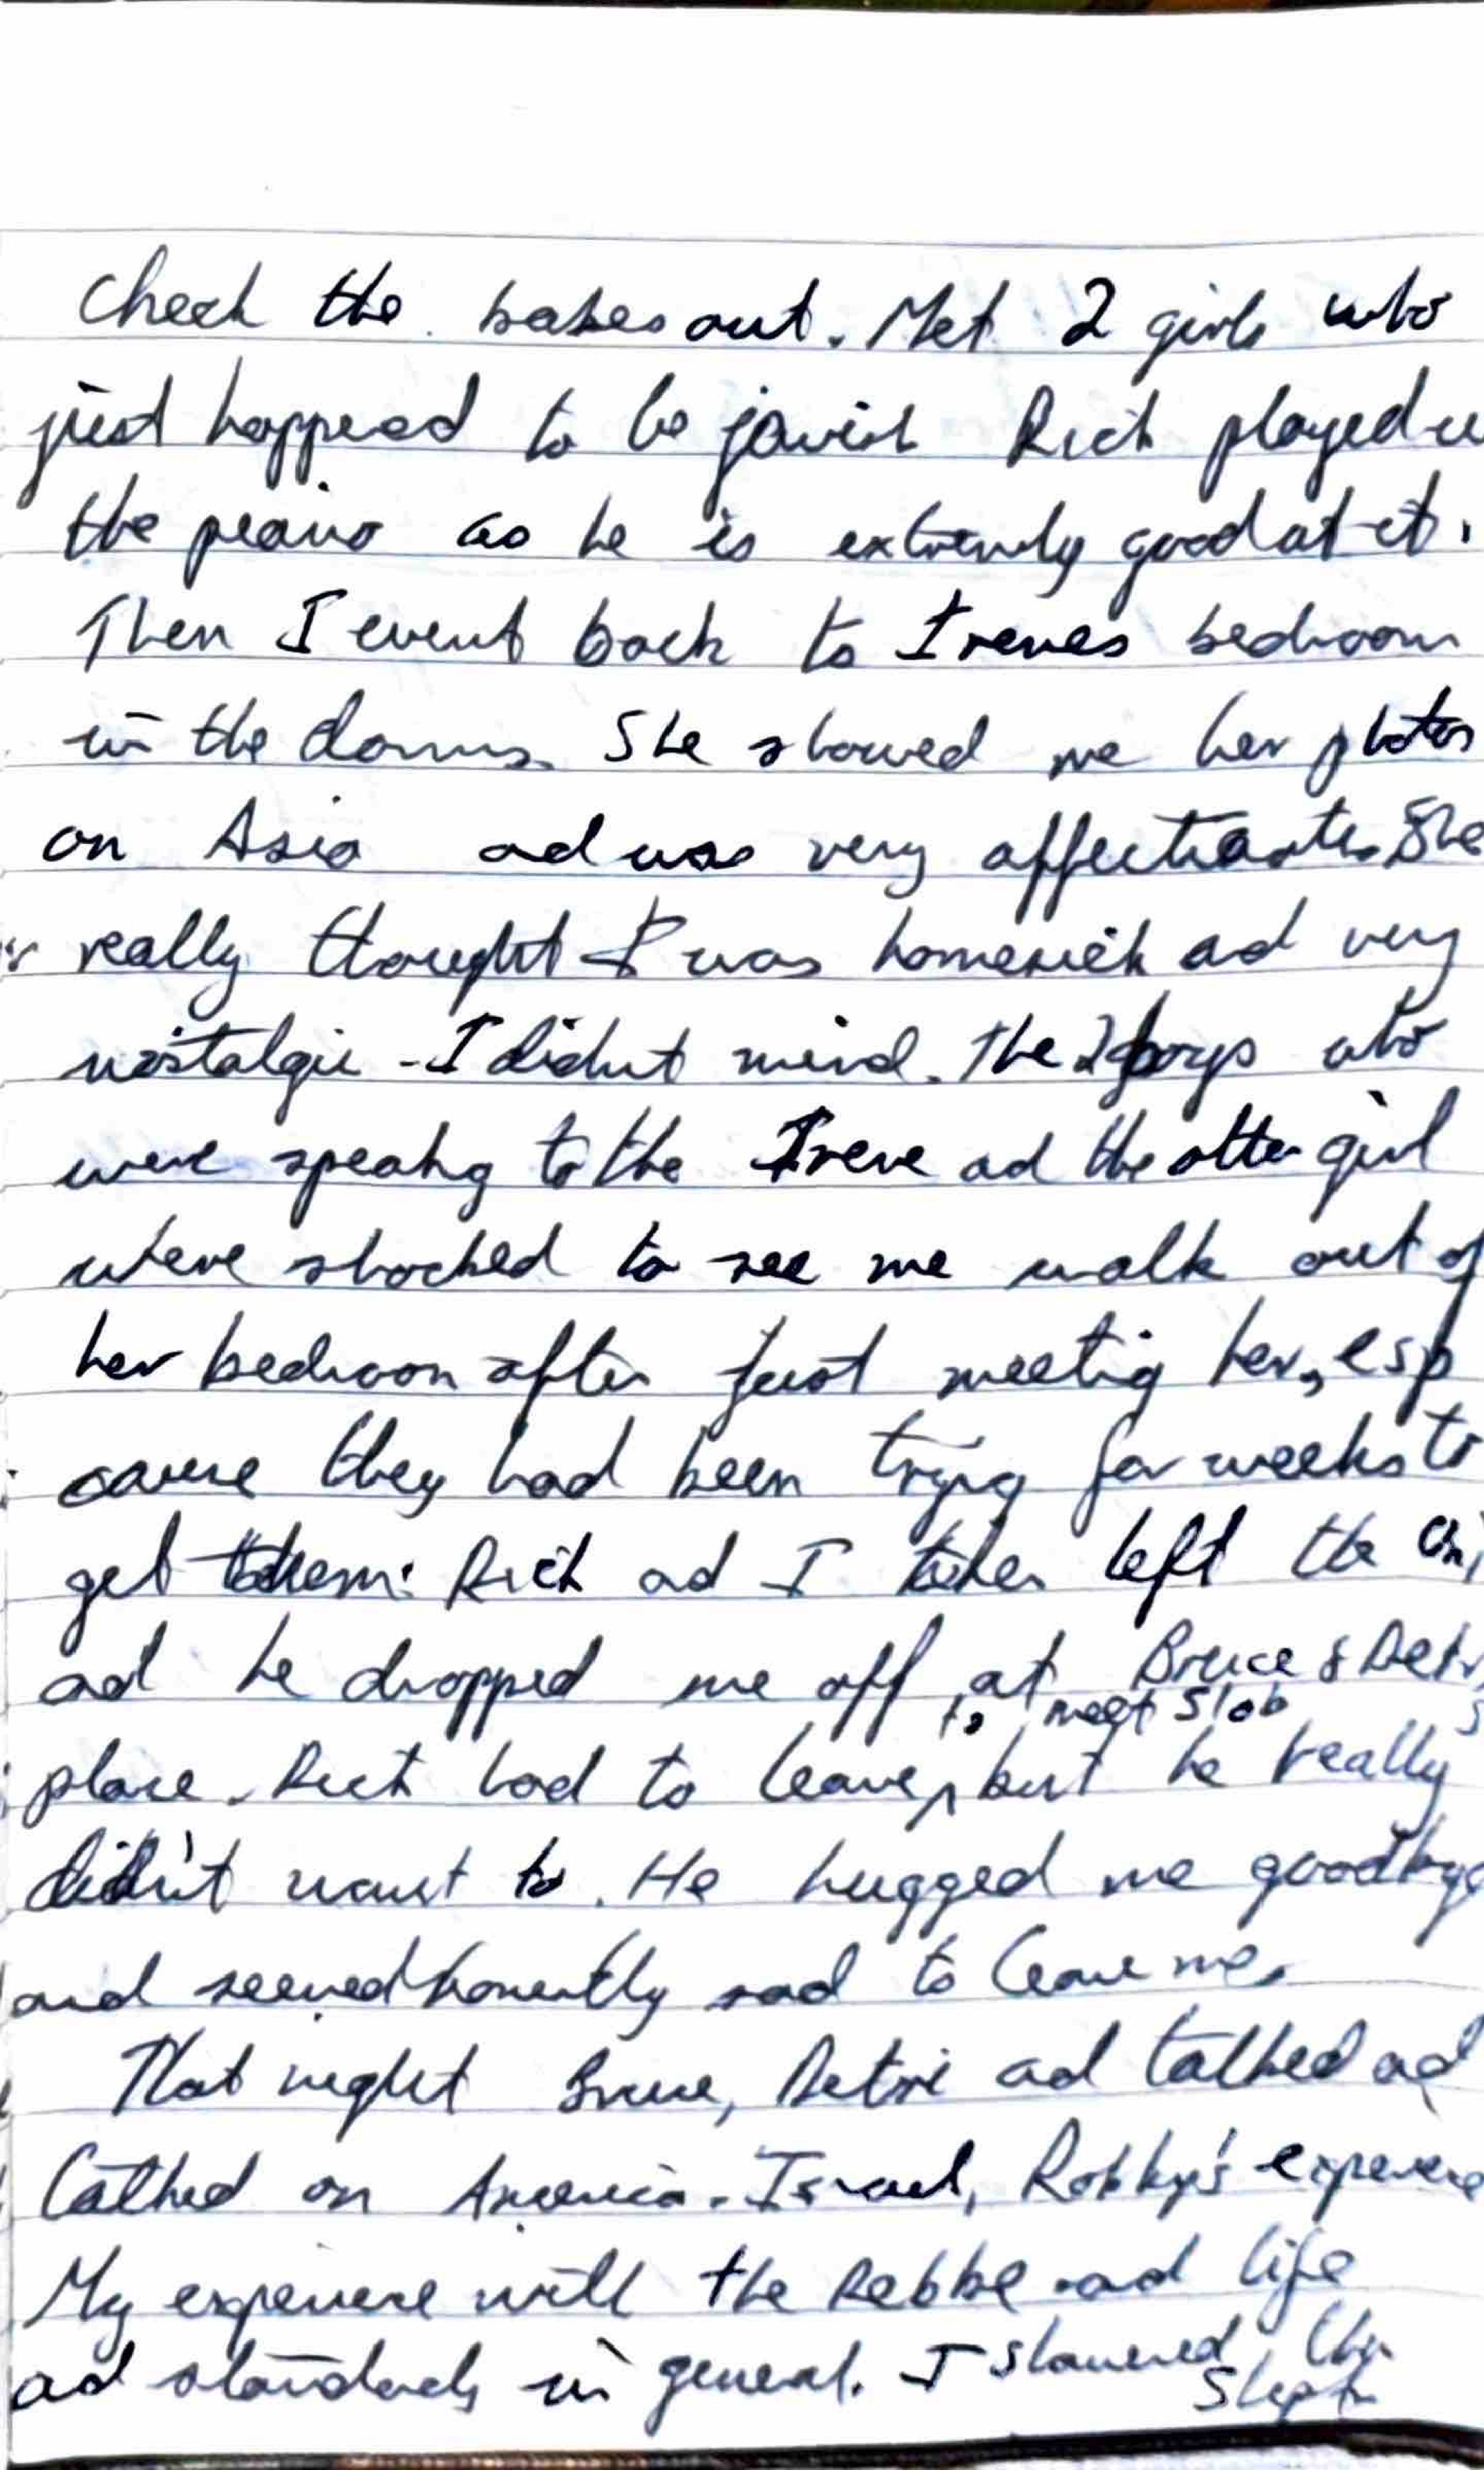 Check the babes out. Met 2 girls who
just happend to be jewish Rich played
the peano as he is extremly good at it.
Then I went back to Irenes bedroom
in the dorms. She showed me her photos
on Asia ad was very affectionate. She
really thought I was homesick ad very
nostalgic - I didnt mind. The 2 boys who
were speakng to the Irene ad the other girl
where shocked to see me walk out of
her bedroom after just meeting her, esp
cause they had been tryig for weeks to
get them. Rich ad I then left the
ad he dropped me off at Bruce &
place. Rich had to leave, to meet Slob but he really
didn't want to. He hugged me goodbye
and seemed honestly sad to leave me.
That night Bruce, ad talked ad
talked on America. Israel, Robby's
My experience with the Rebbe ad life
ad standards in general. I showered, then
Slept